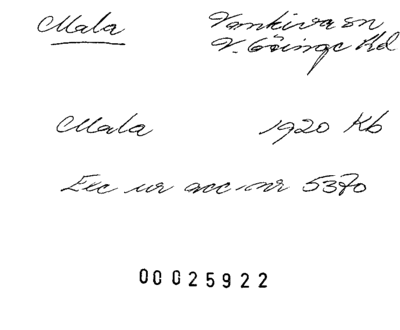 Mala Vankiva sn
V. Göinge Hd
Mala 1920 Kb
Exc ur acc-nr 5370
00025922